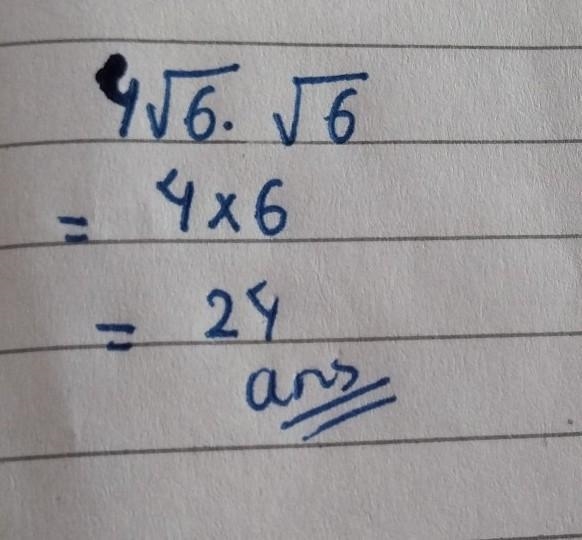 4√6. √6
= 4×6
= 24
ans